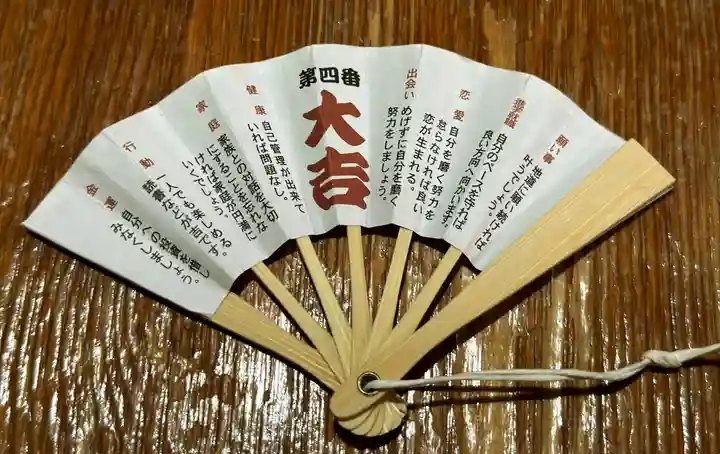 願い事
地道に願い続ければ
叶うでしょう。
自分のペースを守れば
良い方向へ向かいます。
恋愛
自分を磨く努力を
怠らなければ良い
恋が生まれる。
出会い
めげずに自分を磨く
努力をしましょう。
第四番
大吉
健康
自己管理が出来て
いれば問題なし。
家庭
家族との対話を大切
にすることを忘れな
ければ家庭が円満に
いくでしょう。
行動
一人でも楽しめる
読書などが吉です。
金運
自分への投資を惜し
みなくしましょう。